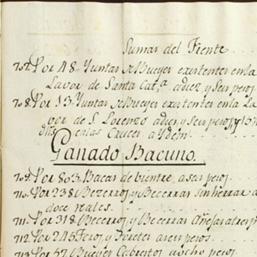 Sumas del Frente
707. Por 48 Yuntas de Bueyes existentes en la
Lavor de Santa Cat.ª a diez y seis pesos
708. Por 13 Yuntas de Bueyes existentes en la La
vor de S. Lorenzo a diez y seis pesos, y 13
en las Cruces a Idem
Ganado Bacuno.
709. Por 803 Bacas de bientre, a seis pesos
710. Por 238 Bezerros, y Becerras sin hierro a
doce reales
711. Por 318 Becerros, y Becerras Añejas a tres p
712. Por 245 Toros, y a seis pesos
713. Por 32 Bueyes Cabrestos a ocho pesos